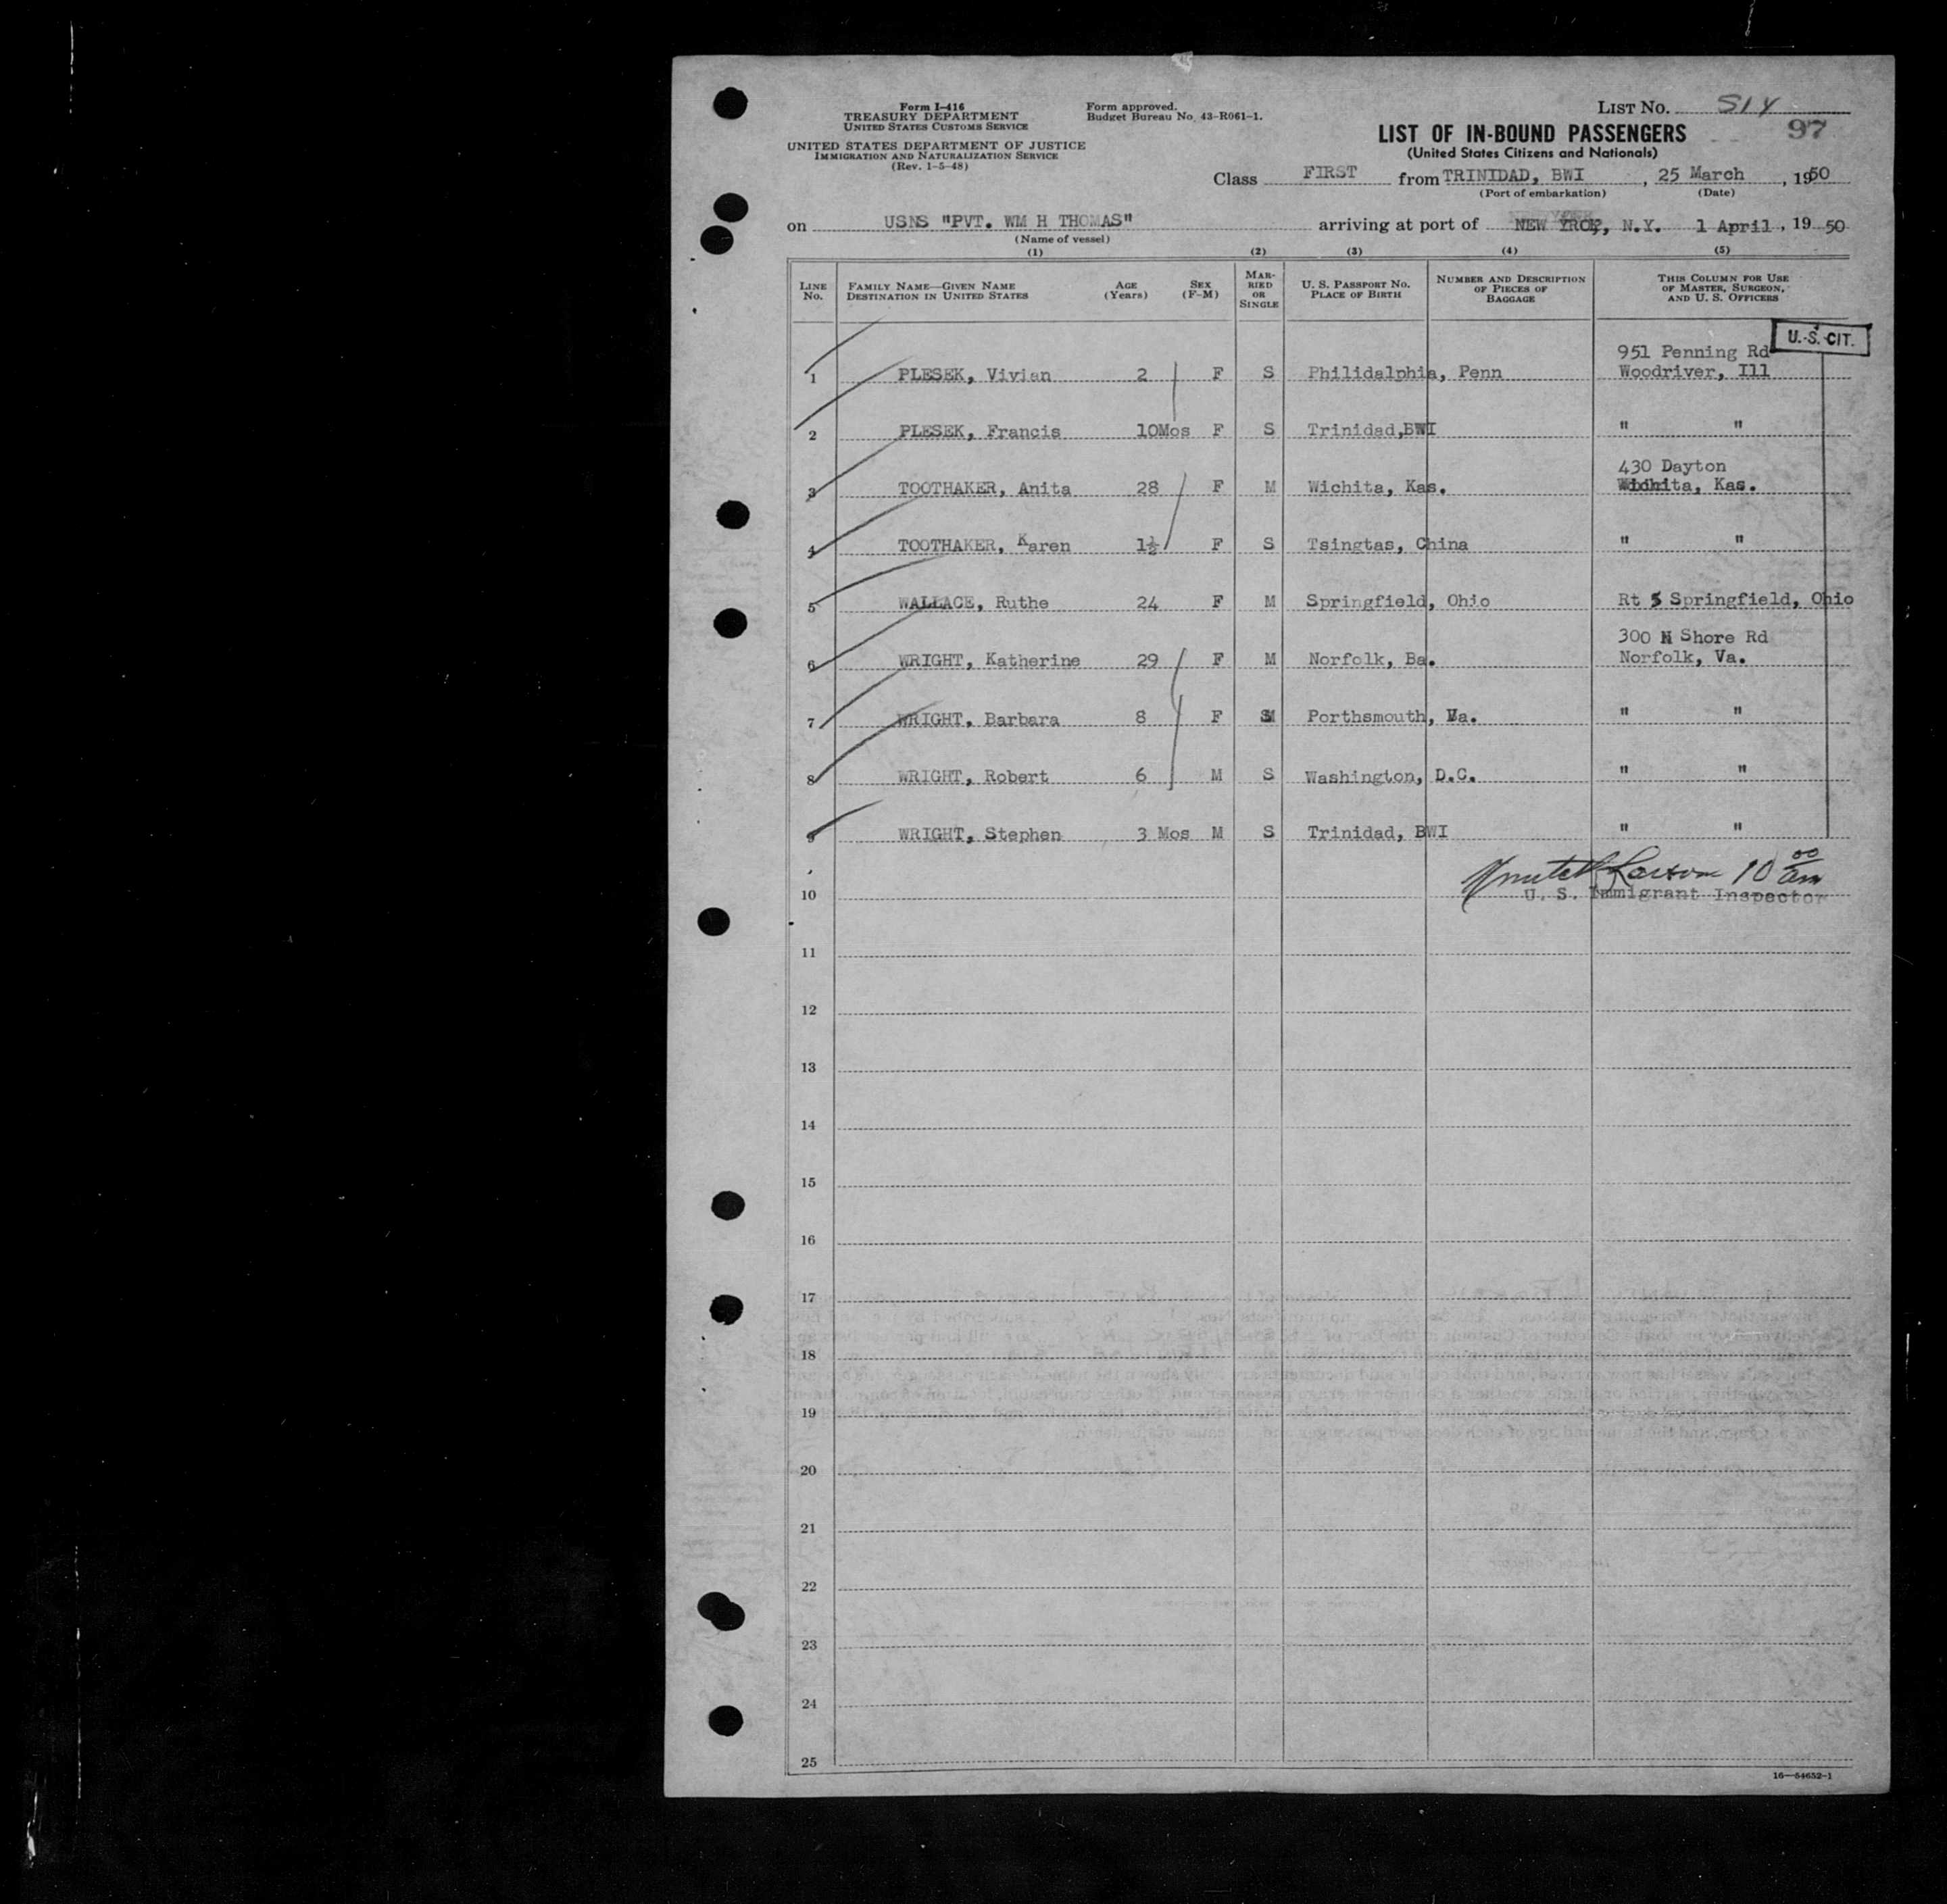 Form I-416
TREASURY DEPARTMENT
UNITED STATES CUSTOMS SERVICE
UNITED STATES DEPARTMENT OF JUSTICE
IMMIGRATION AND NATURALIZATION SERVICE
(Rev. 1-5-48)
Form approved.
Budget Bureau No. 43-R061-1.
LIST NO. SIX
97
LIST OF IN-BOUND PASSENGERS
(United States Citizens and Nationals)
Class FIRST from TRINIDAD, BWI , 25 March , 1950
(Port of embarkation) (Date)
on USNS "PVT. WM H THOMAS" arriving at port of NEW YROK, N.Y. 1 April , 19 50
(Name of vessel)
(1) (2) (3) (4) (5)
LINE NO. FAMILY NAME—GIVEN NAME DESTINATION IN UNITED STATES AGE (Years) SEX (F-M) MARRIED OR SINGLE U. S. PASSPORT NO. PLACE OF BIRTH NUMBER AND DESCRIPTION OF PIECES OF BAGGAGE THIS COLUMN FOR USE OF MASTER, SURGEON, AND U. S. OFFICERS
U.-S. CIT.
951 Penning Rd
1 PLESEK, Vivian 2 F S Philidalphia, Penn Woodriver, Ill
2 PLESEK, Francis 10Mos F S Trinidad,BWI " "
430 Dayton
3 TOOTHAKER, Anita 28 F M Wichita, Kas. Wichita, Kas.
4 TOOTHAKER, Karen 1½ F S Tsingtas, China " "
5 WALLACE, Ruthe 24 F M Springfield, Ohio Rt 5 Springfield, Ohio
300 N Shore Rd
6 WRIGHT, Katherine 29 F M Norfolk, Ba. Norfolk, Va.
7 WRIGHT, Barbara 8 F S Porthsmouth, Va. " "
8 WRIGHT, Robert 6 M S Washington, D.C. " "
9 WRIGHT, Stephen 3 Mos M S Trinidad, BWI " "
Larson 10 00 am
10 U. S. Immigrant Inspector
11
12
13
14
15
16
17
18
19
20
21
22
23
24
25
16—54652-1